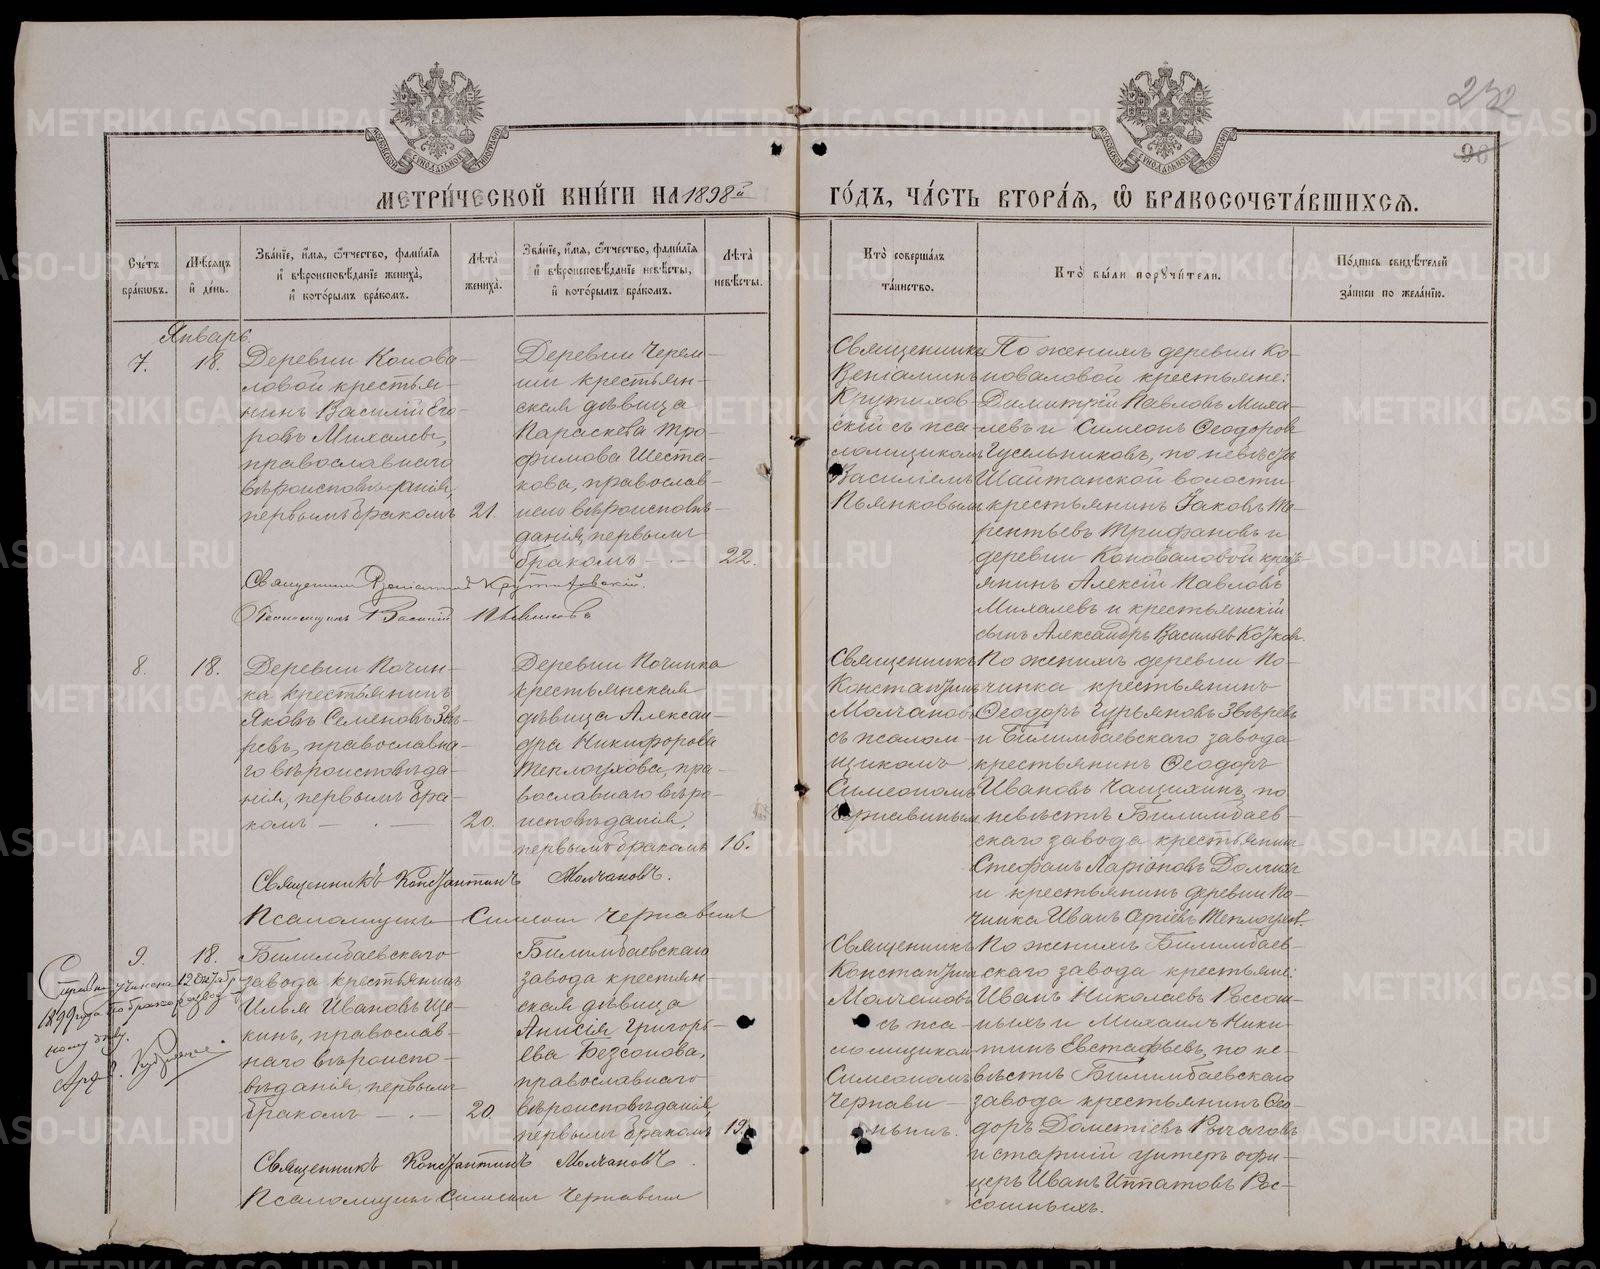 232
98
МЕТРИ́ЧЕСКОЙ КНИ́ГИ НА 1898й ГО́ДЪ, ЧА́СТЬ ВТОРА́Я, Ѡ БРАКОСОЧЕТА́ВШИХСЯ.
Сче́тъ бра́кѡвъ.
Мѣ́сяцъ и҆ де́нь.
Зва́нїе, и҆́мя, ѻ҆́тчество, фами́лїя
и҆ вѣроисповѣ́данїе жениха̀,
и҆ кото́рымъ бра́комъ.
Лѣта̀ жениха̀.
Зва́нїе, и҆́мя, ѻ҆́тчество, фами́лїя
и҆ вѣроисповѣ́данїе невѣ́сты,
и҆ кото́рымъ бра́комъ.
Лѣта̀ невѣ́сты.
Кто̀ соверша́лъ
та́инство.
Кто̀ бы́ли поручи́тели.
По́дпись свидѣ́телей
за́писи по жела́нїю.
Январь
7.
18.
Деревни Конова-
ловой крестья-
нинъ Василій Его-
ровъ Михалевъ,
православнаго
вѣроисповѣданія,
первымъ бракомъ
21.
Деревни Черем-
ши крестьян-
ская дѣвица
Параскева Тро-
фимова Шеста-
кова, православ-
наго вѣроисповѣ-
данія, первымъ
бракомъ
22.
Священникъ
Веніаминъ
Крутихов-
скій съ пса-
ломщикомъ
Василіемъ
Пьянковымъ
По женихѣ деревни Ко-
новаловой крестьяне:
Димитрій Павловъ Миха-
левъ и Симеонъ Ѳеодоровъ
Гусельниковъ, по невѣстѣ
Шайтанской волости
крестьянинъ Іаковъ Те-
рентьевъ Трифановъ и
деревни Коноваловой кресть-
янинъ Алексій Павловъ
Михалевъ и крестьянскій
сынъ Александръ Васильевъ
Священникъ Веніаминъ Крутиховскій.
Псаломщикъ Василій Пьянковъ
8.
18.
Деревни Почин-
ка крестьянинъ
Яковъ Семеновъ Звѣ-
ревъ, православна-
го вѣроисповѣда-
нія, первымъ бра-
комъ
20.
Деревни Починка
крестьянская
дѣвица Алексан-
дра Никифорова
Теплоухова, пра-
вославнаго вѣро-
исповѣданія,
первымъ бракомъ
16.
Священникъ
Константинъ
Молчановъ
съ псалом-
щикомъ
Симеономъ
Чернавинымъ
По женихѣ деревни По-
чинка крестьянинъ
Ѳеодоръ Гурьяновъ Звѣревъ
и Билимбаевскаго завода
крестьянинъ Ѳеодоръ
Ивановъ Чащихинъ, по
невѣстѣ Билимбаев-
скаго завода крестьянинъ
Стефанъ Ларіоновъ Долгихъ
и крестьянинъ деревни По-
чинка Иванъ Сергіевъ Теплоуховъ.
Священникъ Константинъ Молчановъ.
Псаломщикъ Симеонъ Чернавинъ
9.
18.
Билимбаевскаго
завода крестьянинъ
Илья Ивановъ Ще-
кинъ, православ-
наго вѣроиспо-
вѣданія, первымъ
бракомъ
20.
Билимбаевскаго
завода крестьян-
ская дѣвица
Анисія Григорь-
ева Безсонова,
православнаго
вѣроисповѣданія,
первымъ бракомъ
19.
Священникъ
Константинъ
Молчановъ
съ пса-
ломщикомъ
Симеономъ
Чернави-
нымъ.
По женихѣ Билимбаев-
скаго завода крестьяне:
Иванъ Николаевъ Россош-
ныхъ и Михаилъ Ники-
тинъ Евстафьевъ, по не-
вѣстѣ Билимбаевскаго
завода крестьянинъ Ѳео-
доръ Дометіевъ Рычаговъ
и старшій унтеръ офи-
церъ Иванъ Ипатовъ Рос-
сошныхъ.
Священникъ Константинъ Молчановъ.
Псаломщикъ Симеонъ Чернавинъ
учинена 12
1899 года по бракоразвод
ному дѣлу.
METRIKI.GASO-URAL.RU